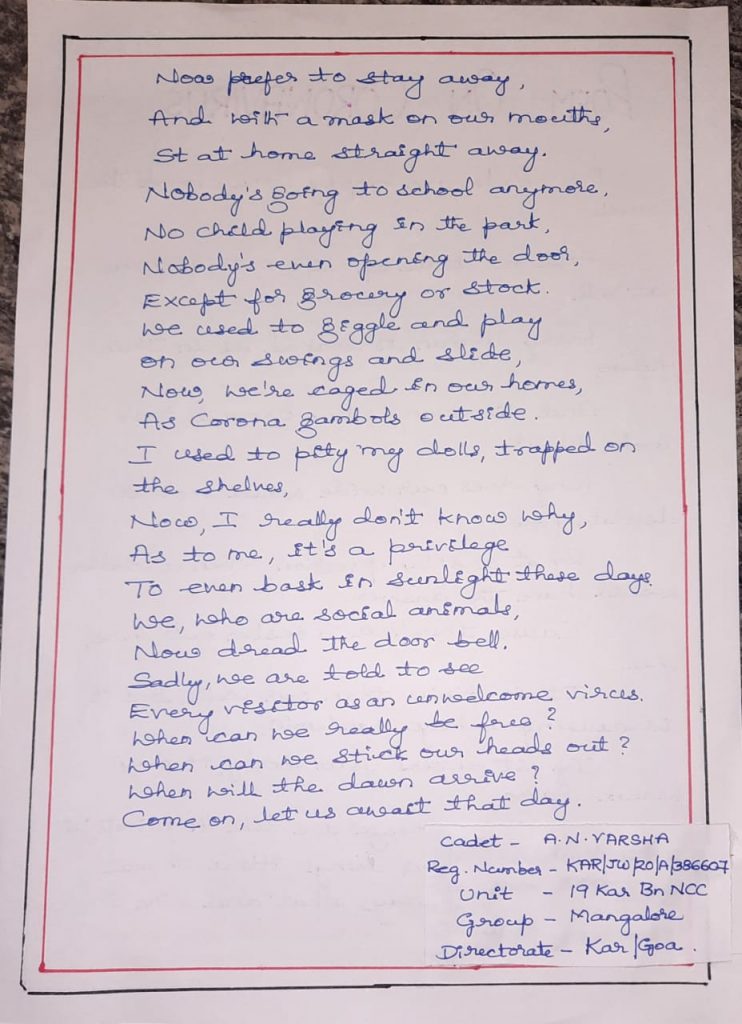 Now prefer to stay away,
And with a mask on our mouths,
St at home straight away.
Nobody's going to school anymore,
No child playing in the park,
Nobody's even opening the door,
Except for grocery or stock.
We used to giggle and play
on our swings and slide,
Now, we're caged in our homes,
As Corona gambols outside.
I used to pity my dolls, trapped on
the shelves,
Now, I really don't know why,
As to me, it's a privilege
To even bask in sunlight these days.
We, who are social animals,
Now dread the door bell.
Sadly, we are told to see
Every visitor as an unwelcome virus.
When can we really be free?
When can we stick our heads out?
When will the dawn arrive?
Come on, let us await that day.
Cadet - A.N.VARSHA
Reg. Number - KAR/JW/20/A/386607
Unit - 19 Kar Bn NCC
Group - Mangalore
Directorate - Kar/Goa.